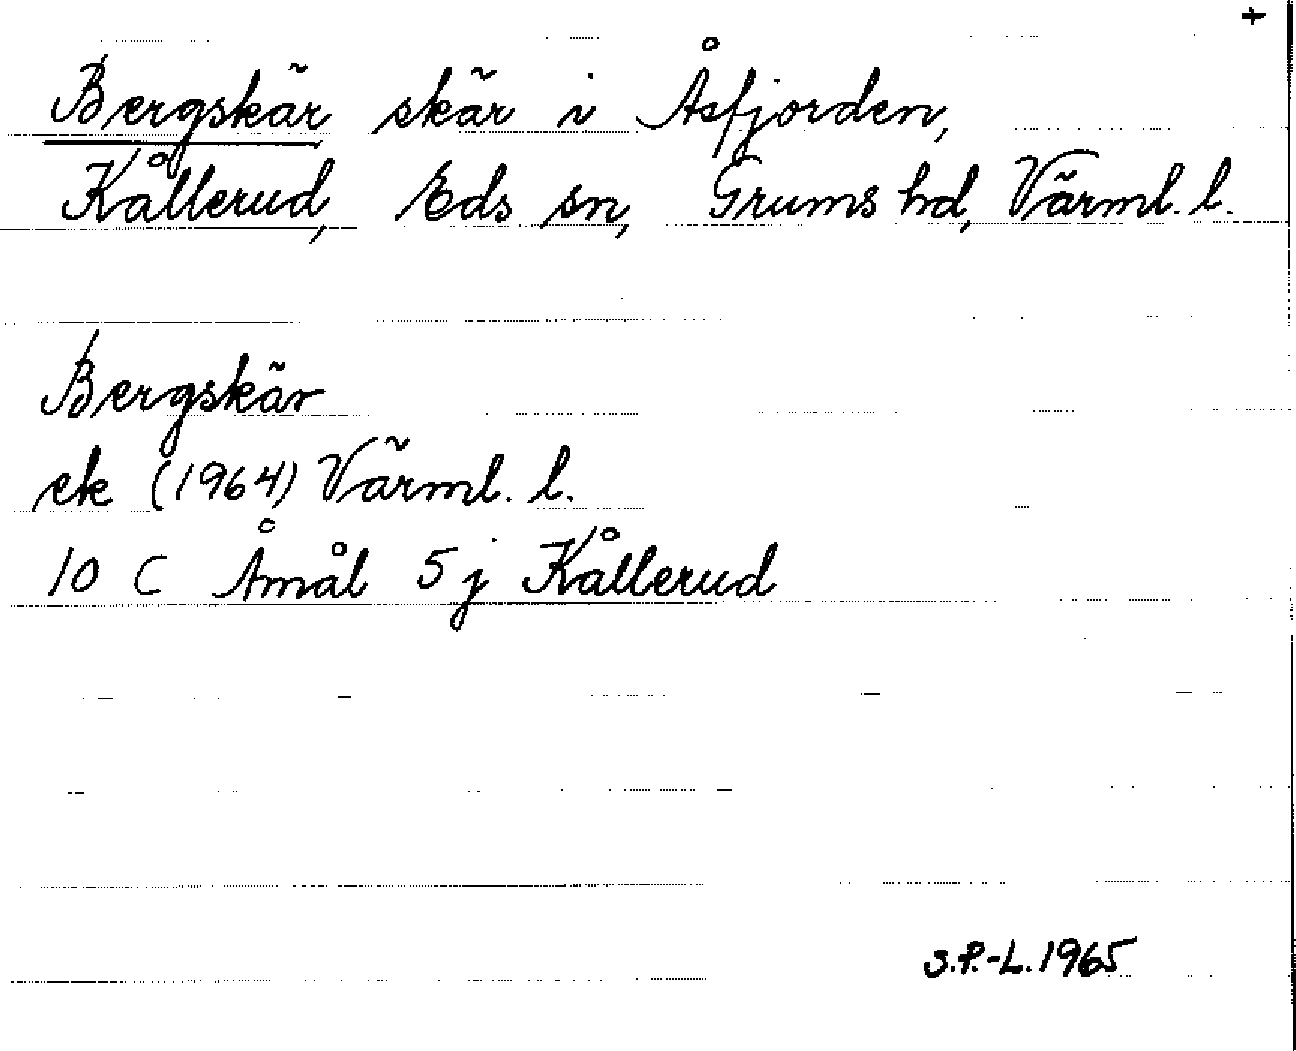 +
Bergskär skär i Åsfjorden,
Kållerud, Eds sn, Grums hd, Värml. l.
Bergskär
ek (1964) Värml. l.
10 C Åmål 5 j Kållerud
S.P.-L. 1965